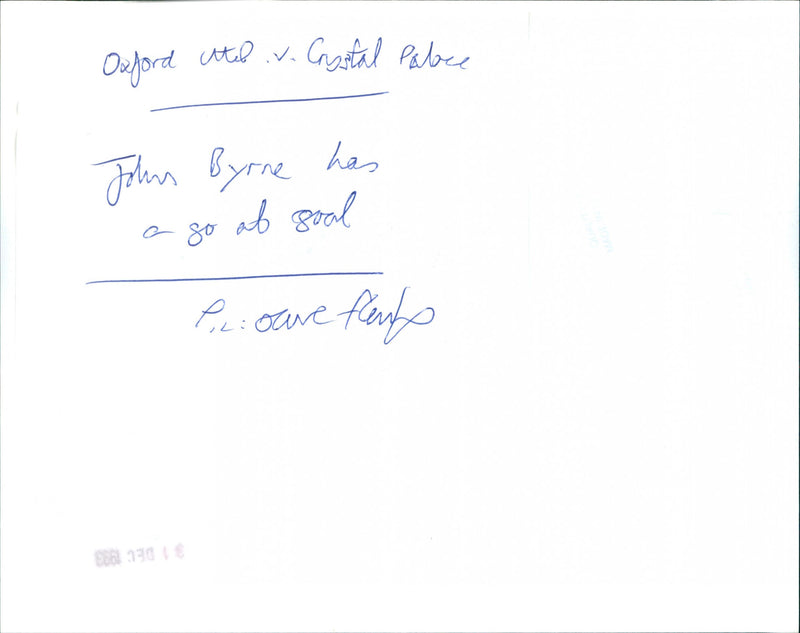 Oxford Utd .v. Crystal Palace
John Byrne has
a go at goal
Pic:
DEC 1993